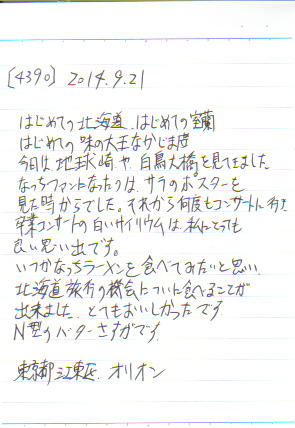 [4390] 2014.9.21
はじめての北海道、はじめての室蘭
はじめての味の大王なかじま店
今日は地球岬や白鳥大橋を見てきました
なっちファンになったのは、サラのポスターを
見た時からでした。それから何度もコンサートに行き
卒業コンサートの白いサイリウムは私にとっても
良い思い出です。
いつかなっちラーメンを食べてみたいと思い
北海道旅行の機会についに食べることが
出来ました。とてもおいしかったです
N型のバターさすがです。
東京都江東区 オリオン